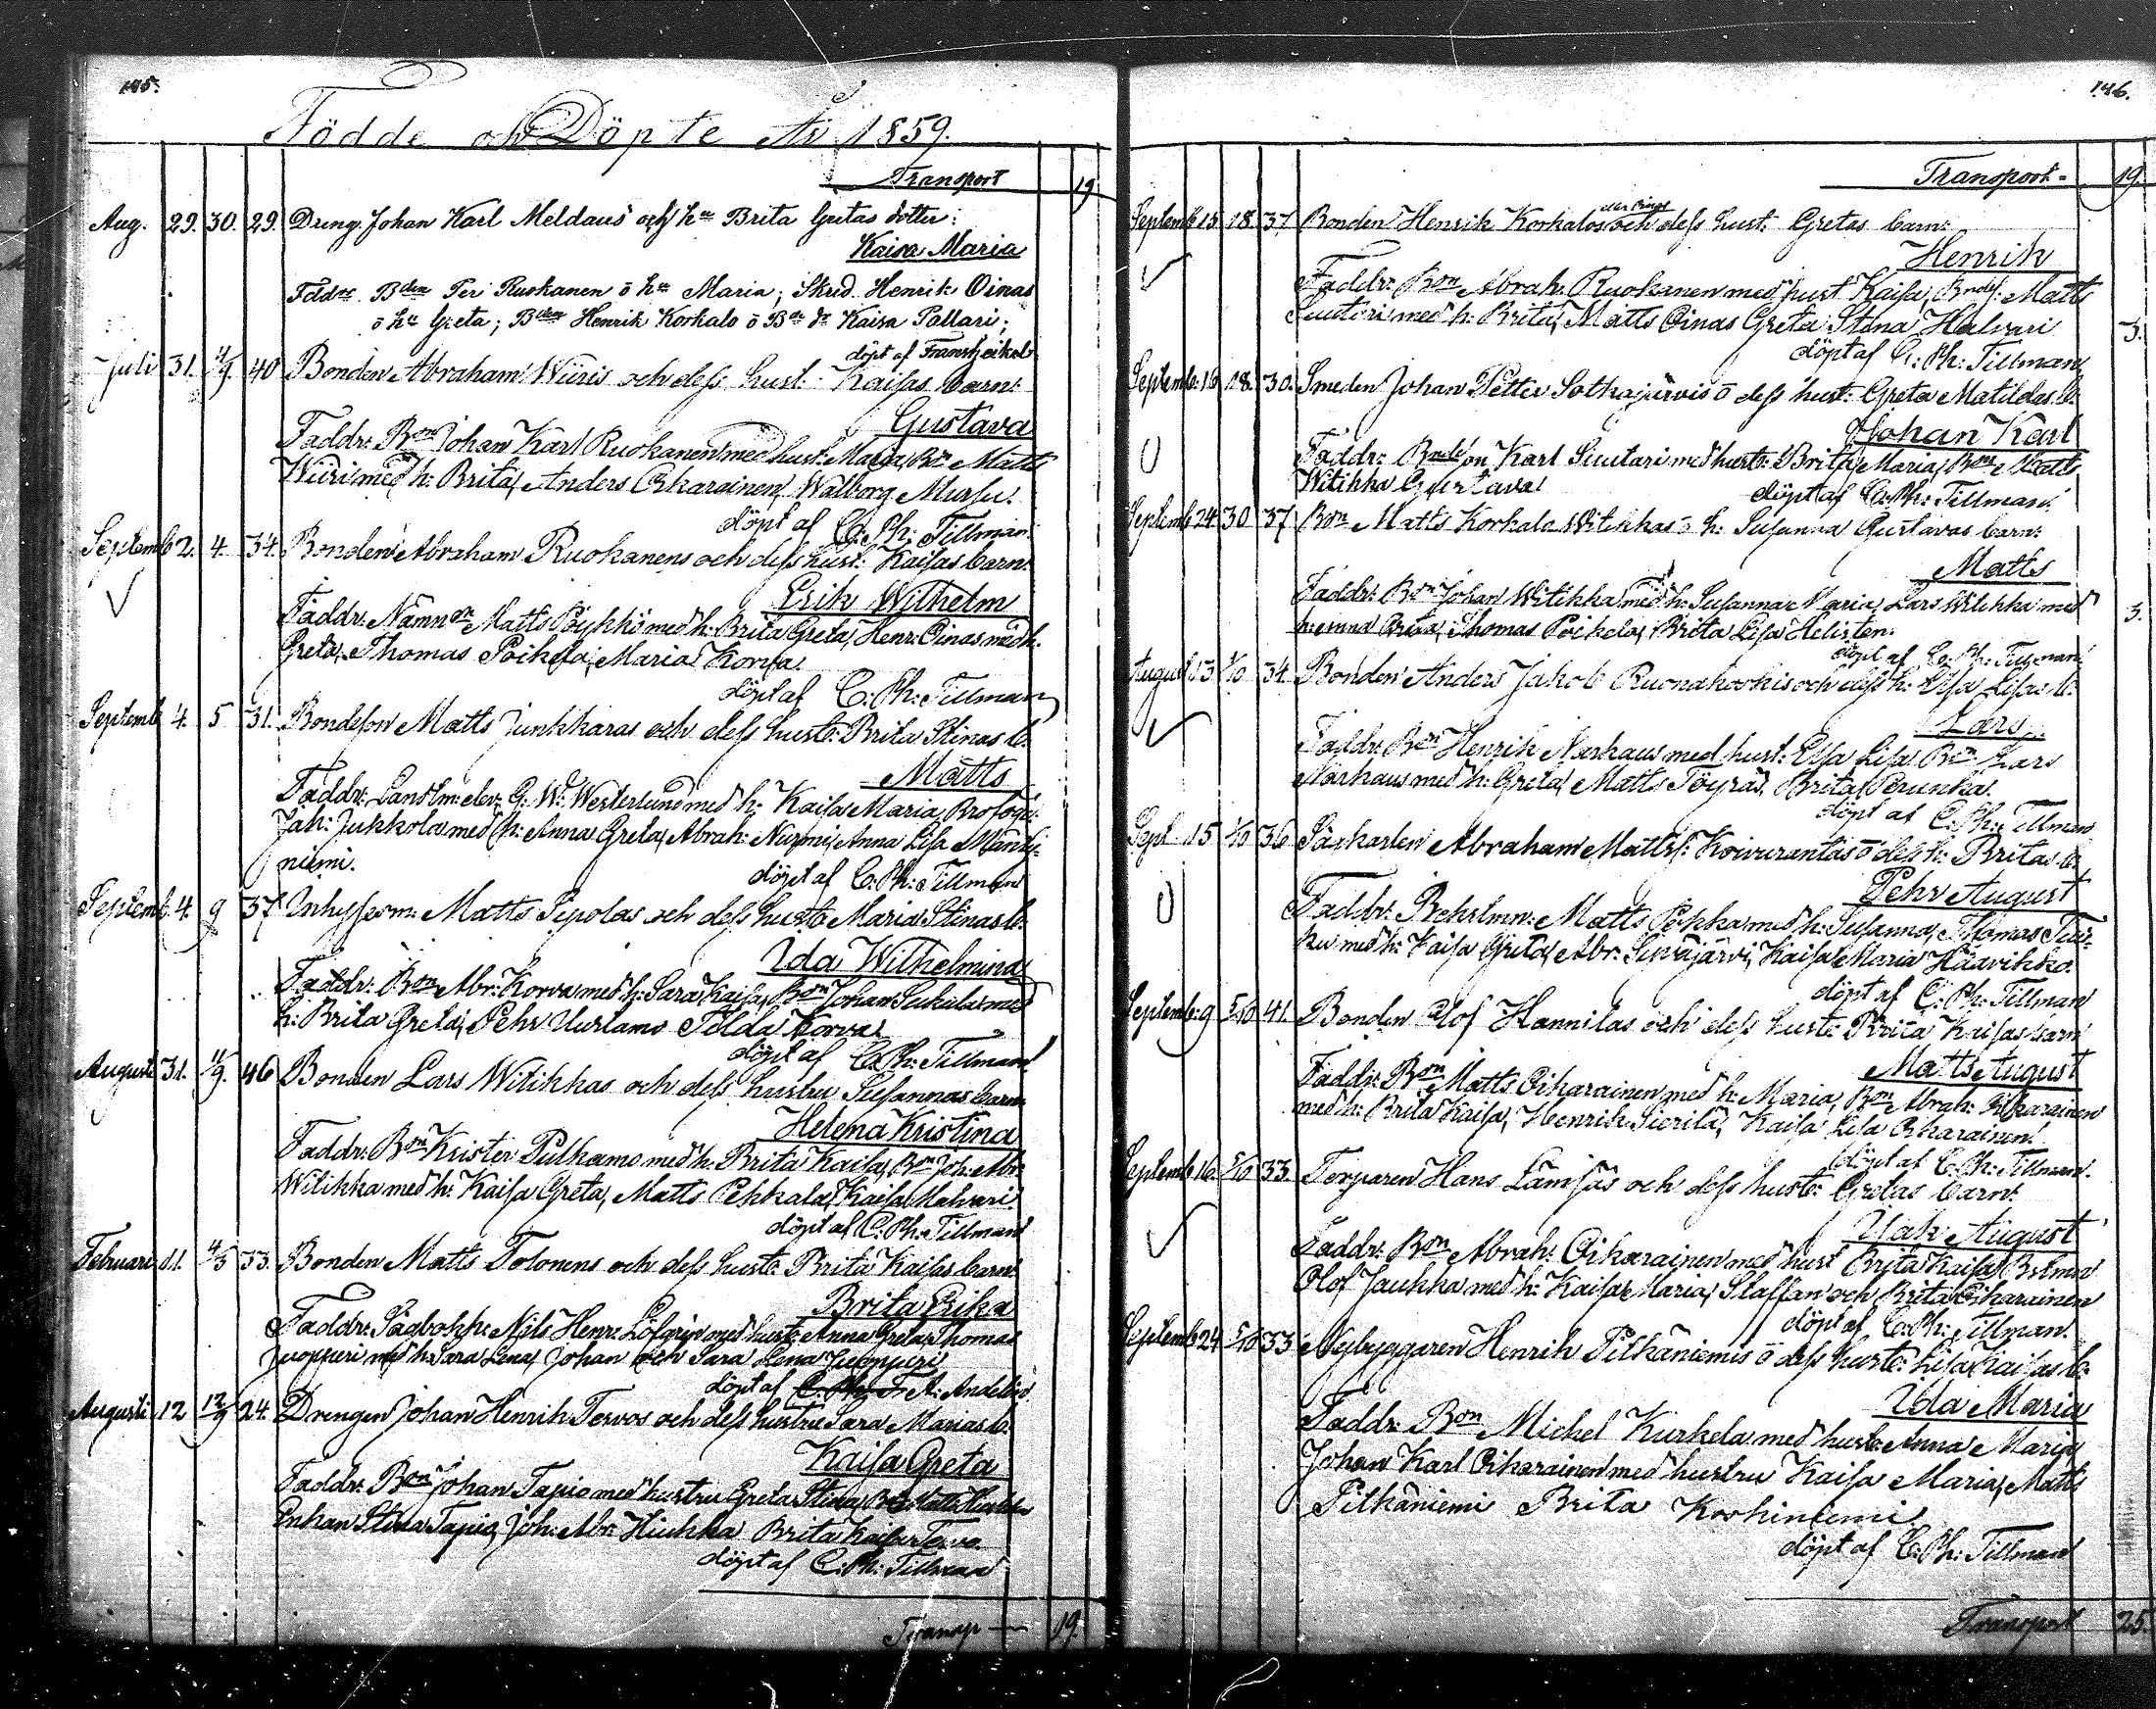 145.
Födde och Döpte År 1859.
Transport 19
Aug. 29. 30. 29. Dreng. Johan Karl Meldaus och hu Brita Gretas dotter:
Kaisa Maria
Fddrr. Bden Per Ruokanen o hu Maria; Skred. Henrik Oinas
o hu Greta; Bden Henrik Korkalo o Bde dr Kaisa Pallari;
döpt af
Juli 31. 4/9. 40 Bonden Abraham Wiiris och dess hust. Kaisas barn:
Gustava
Faddr: Bon Johan Karl Ruokanen med hust: Maria, Bn Matts
Wiiri med h: Brita, Anders Oikarainen, Walborg Mursu.
döpt af C. Ph: Tillman
Septemb 2. 4. 34. Bonden Abraham Ruokanens och dess hust: Kaisas barn:
Erik Wilhelm
Faddr: Nämn Matts Pöykkö med h: Brita Greta, Henr: Oinas med h:
Greta, Thomas Poikela, Maria Korva.
döpt af C. Ph: Tillman
Septemb 4. 5 31. Bondeson Matts Junkkaras och dess hust: Brita Stinas b:
Matts
Faddr: Lanstm: elev: G: W: Westerlund med h: Kaisa Maria,
Jak: Jukkola med h: Anna Greta, Abrah: Nurmi, Anna Lisa Mänty-
niemi.
döpt af C. Ph: Tillman
Septemb. 4. 9 37 Inhysesm: Matts Sipolas och dess hust: Maria Stinas b:
Ida Wilhelmina
Faddr: Bon Abr: Korva med h: Sara Kaisa, Bon Johan med
h: Brita Greta, Pehr Uurtamo Tilda Korva
döpt af C. Ph: Tillman
Augusti 31. 11/9. 46 Bonden Lars Witikkas och dess hustru Susannas barn
Helena Kristina
Faddr: Bon Krister Pulkamo med h: Brita Kaisa, Bon Joh: Abr:
Witikka med h: Kaisa Greta, Matts Pekkala, Kaisa Halvari.
döpt af C. Ph: Tillman
Februari 11. 4/3 33. Bonden Matts Tolonens och dess hust: Brita Kaisas barn:
Brita Erika
Faddr: Sågbokh: Nils Henr: Löfgren med hust: Anna Greta, Thomas
Juopperi med h: Sara Lena, Johan och Sara Lena Juopperi
döpt af F. A: Andelin
Augusti 12 12/9 24. Drengen Johan Henrik Tervos och dess hustru Sara Marias b:
Kaisa Greta
Faddr: Bon Johan Tapio med hustru Greta Stina,
Enkan Stina Tapio, Joh: Abr: Hiukka Brita Kaisa Tervo
döpt af C. Ph: Tillman
Transp 19.
146.
Transport 19
Septemb 15 18. 37 Bonden Henrik Korkalos och dess hust: Gretas barn:
Henrik
Faddr: Bon Abrah. Ruokanen med hust Kaisa, Bndes: Matts
Suutari med h: Brita, Matts Oinas Greta Stina Halvari 3.
döpt af C. Ph: Tillman
Septemb: 16 18. 30. Smeden Johan Petter Sotkajärvis o dess hust: Greta Matildas b:
Johan Karl
Faddr: Karl Suutari med hust: Brita Maria, Bon Matts
Witikka Gustava
döpt af C. Ph: Tillman
Septemb 24 30 37 Bon Matts Korkalo Witikkas o h: Susanna Gustavas barn:
Matts
Faddr: Bon Johan Witikka med h: Susanna Maria, Lars Witikka med
h: Anna Brita, Thomas Poikela, Brita Lisa Helisten. 3.
döpt af C. Ph: Tillman
August 13 1/10 34. Bonden Anders Jakob Ruonakoskis och dess h: Elsa Lisas b:
Lars
Faddr: Bon Henrik Narkaus med hust: Elsa Lisa Bon Lars
Narkaus med h: Greta, Matts Töyräs, Brita Perunka.
döpt af C. Ph: Tillman
Sept 15 1/10 36 Abraham Matts: Koivurantas o dess h: Britas b:
Pehr August
Faddr: Matts Pekka med h: Susanna, Thomas
med h: Kaisa Greta, Abr: Sirväjärvi, Kaisa Maria Haavikko.
döpt af C. Ph: Tillman
Septemb: 9 5/10 41. Bonden Olof Hannilas och dess hust: Brita Kaisas barn
Matts August
Faddr: Bon Matts Oikarainen med h: Maria, Bon Abrah: Oikarainen
med h: Brita Kaisa, Henrik Sierilä, Kaisa Lisa Oikarainen.
döpt af C. Ph: Tillman.
Septemb 16. 5/10 33. Torparen Hans Lämsäs och dess hust: Gretas barn:
Isak August
Faddr: Bon Abrah: Oikarainen med hust Brita Kaisa,
Olof Jaukka med h: Kaisa Maria, Staffan och Brita Oikarainen
döpt af C. Ph: Tillman.
Septemb 24 5/10 33 Nybyggaren Henrik Pitkäniemis o dess hust: Lisa Kaisas b:
Ida Maria
Faddr: Bon Michel Kurkela med hust: Anna Maria,
Johan Karl Oikarainen med hustru Kaisa Maria, Matts
Pitkäniemi Brita Koskiniemi
döpt af C. Ph: Tillman
Transport 25.